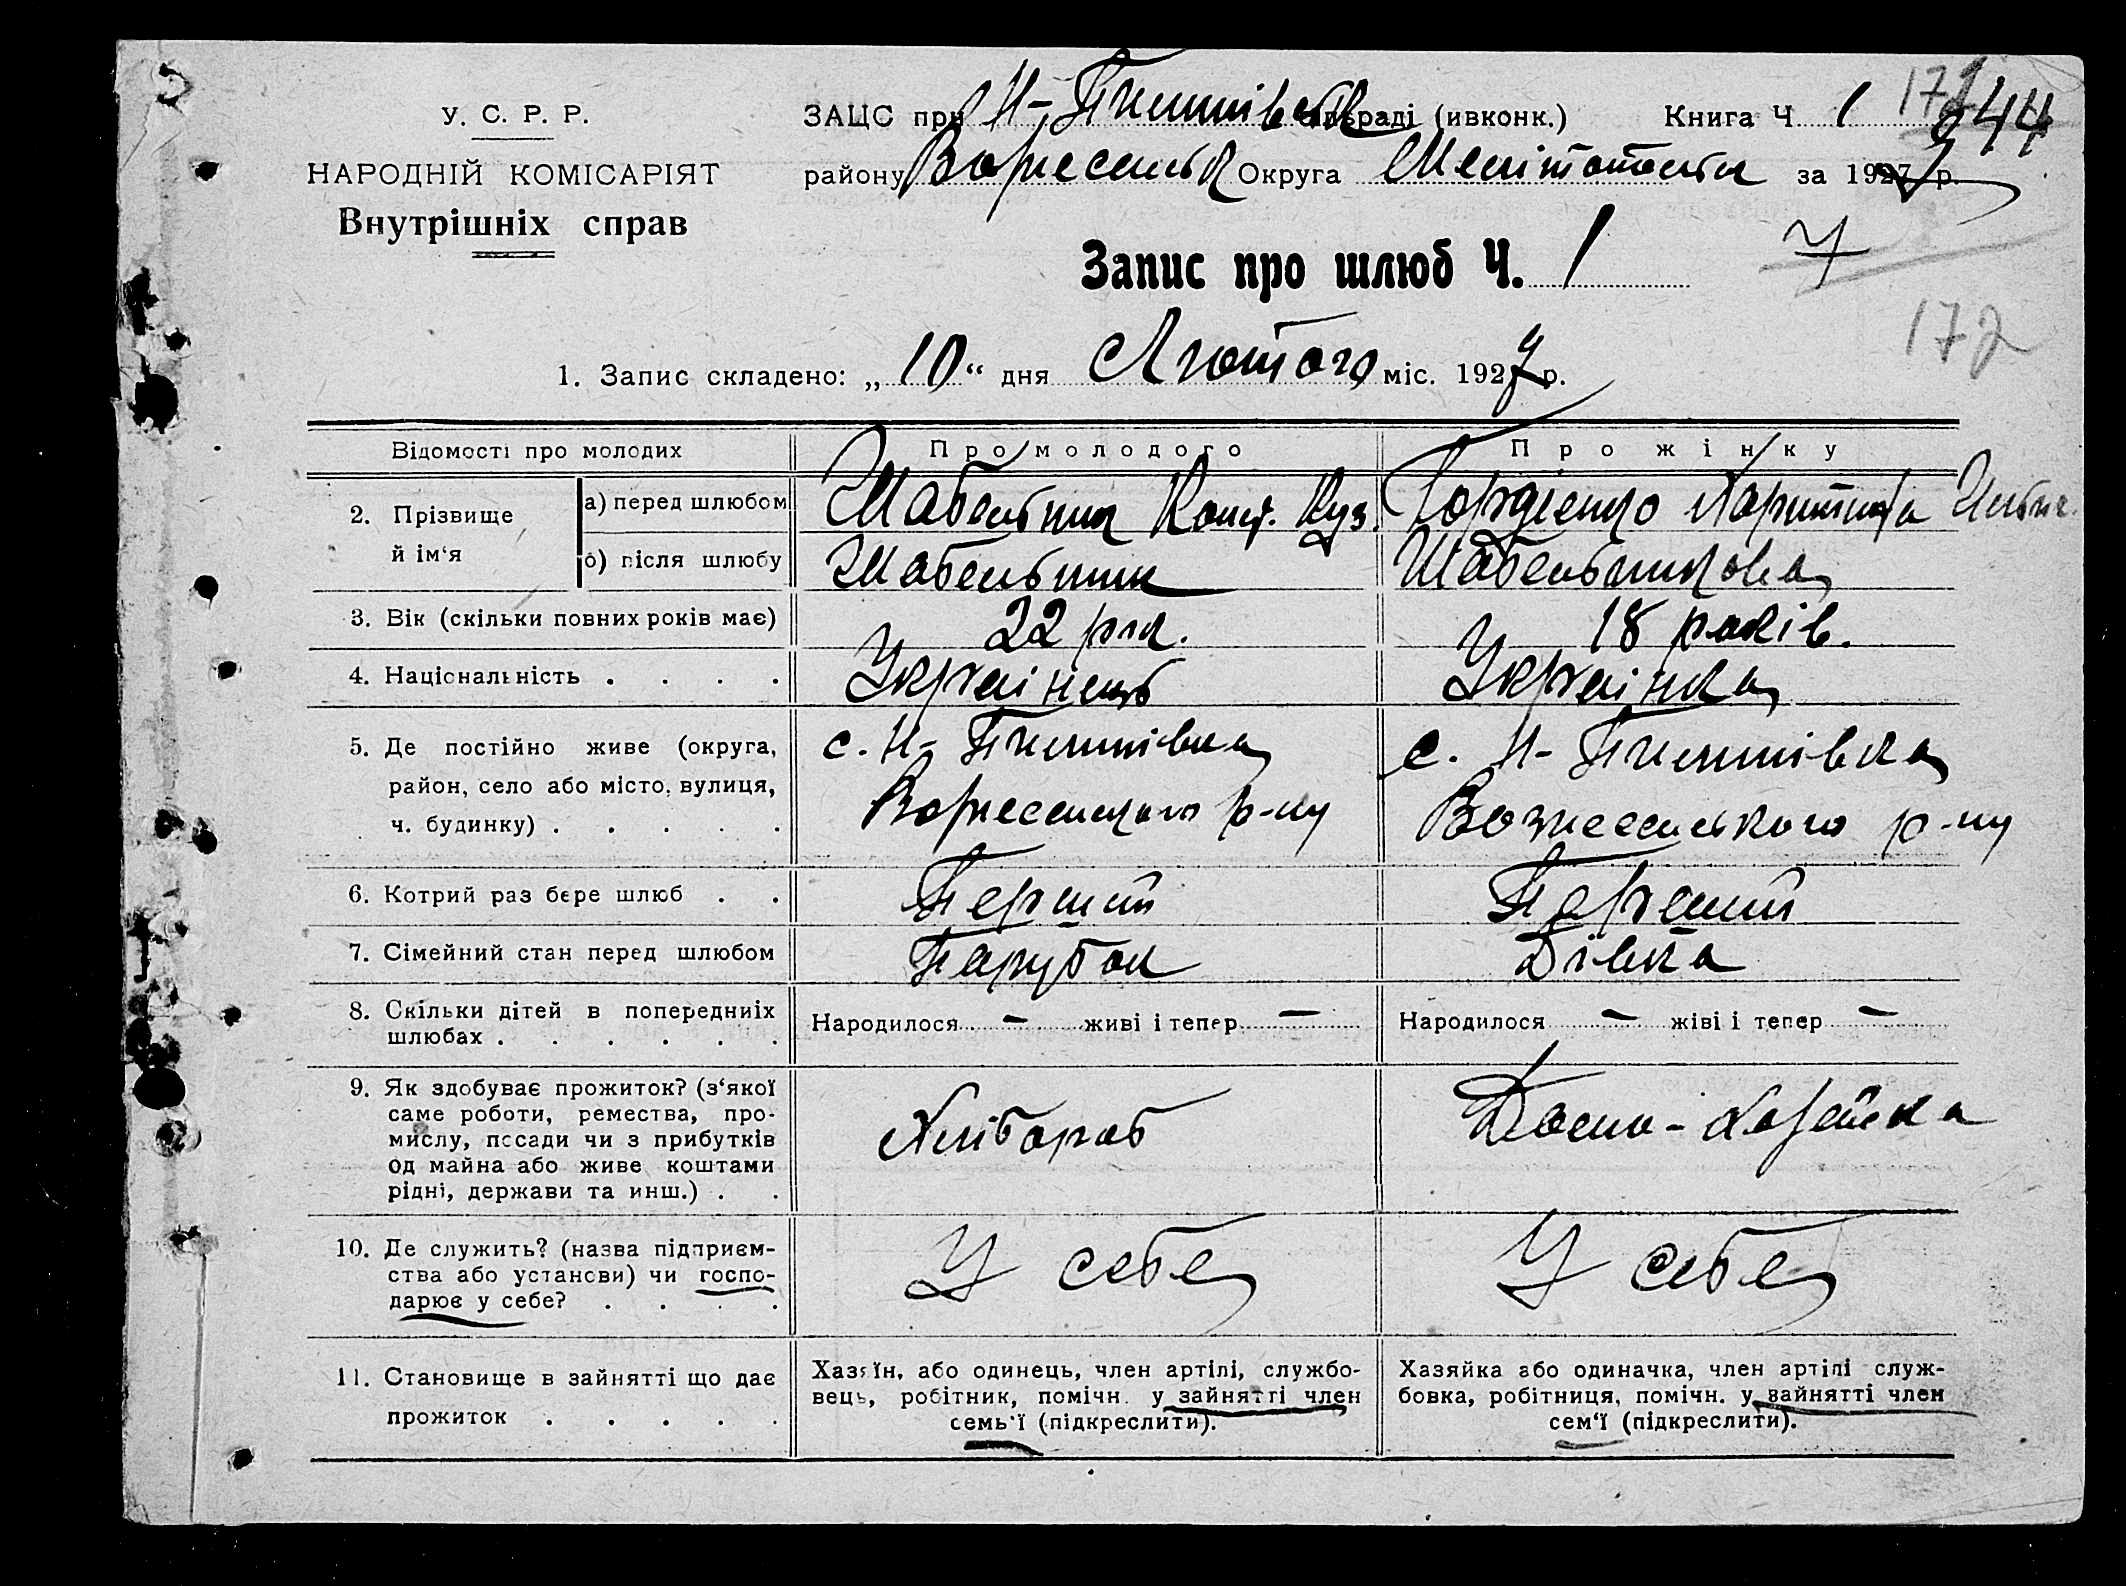 172
У. С. Р. Р.
НАРОДНІЙ КОМІСАРІЯТ
Внутрішніх справ
ЗАЦС при Н-Пилипівськ сільраді (ивконк.) Книга Ч 1 244
району Вознесенськ Округа Мелітопольск за 1927 р.
Запис про шлюб Ч. 1
7
172
1. Запис складено: „10“ дня Лютого міс. 1927 р.
Відомості про молодих Про молодого Про жінку
2. Прізвище й ім‘я
а) перед шлюбом Шабельник Конст. Куз. Гордієнко Харитина
б) після шлюбу Шабельник Шабельникова
3. Вік (скільки повних років має) 22 рік. 18 років.
4. Національність . . . . Українець Українка
5. Де постійно живе (округа, с. Н-Пилипівка с. Н-Пилипівка
район, село або місто, вулиця, Вознесенського р-ну Вознесенського р-ну
ч. будинку) . . . . .
6. Котрий раз бере шлюб . . Перший Перший
7. Сімейний стан перед шлюбом Парубок Дівка
8. Скільки дітей в попередниіх Народилося — живі і тепер — Народилося — жіві і тепер —
шлюбах . . . . . .
9. Як здобуває прожиток? (з‘якої
саме роботи, ремества, про-
мислу, посади чи з прибутків Хлібороб Домо-хазяйка
од майна або живе коштами
рідні, держави та инш.) . .
10. Де служить? (назва підприєм-
ства або установи) чи госпо- У себе У себе
дарює у себе? . . . .
11. Становище в зайнятті що дає
прожиток . . . . .
Хазяїн, або одинець, член артілі, службо-
вець, робітник, помічн. у зайнятті член
семь‘ї (підкреслити).
Хазяйка або одиначка, член артілі служ-
бовка, робітниця, помічн. у зайнятті член
сем‘ї (підкреслити).